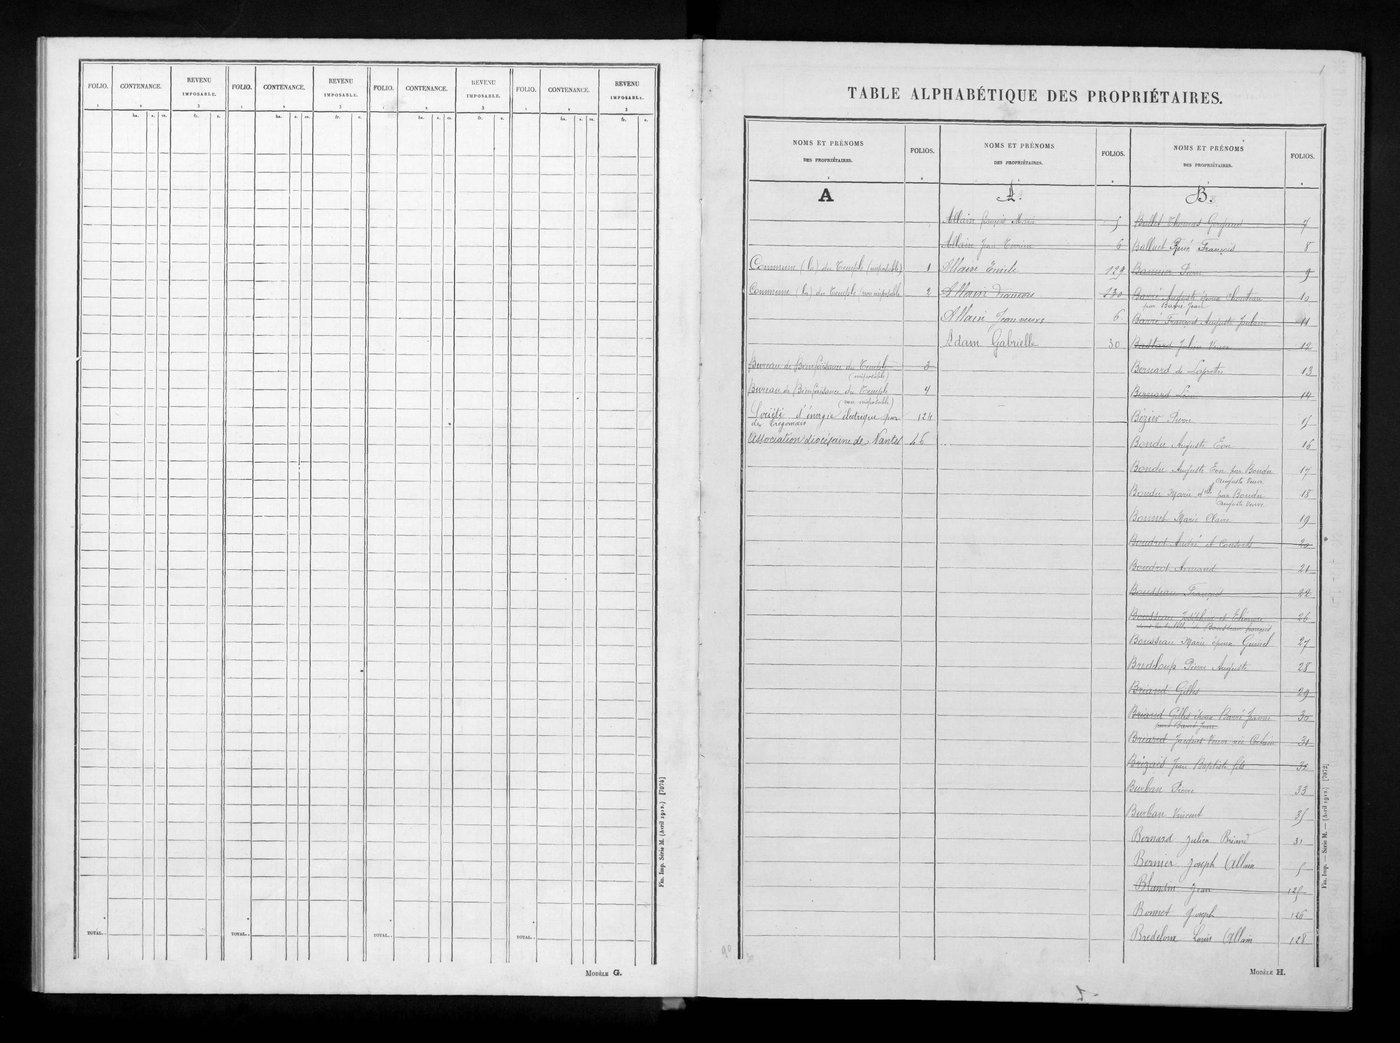 FOLIO. CONTENANCE. REVENU IMPOSABLE. FOLIO. CONTENANCE. REVENU IMPOSABLE. FOLIO. CONTENANCE. REVENU IMPOSABLE. FOLIO. CONTENANCE. REVENU IMPOSABLE.
1 2 3 1 2 3 1 2 3 1 2 3
ha. a. ca. fr. c. ha. a. ca. fr. c. ha. a. ca. fr. c. ha. a. ca. fr. c.
TOTAL. TOTAL. TOTAL. TOTAL.
MODÈLE G.
Fin. Imp. Série M. (Avril 1912.) [7074]
1
TABLE ALPHABÉTIQUE DES PROPRIÉTAIRES.
NOMS ET PRÉNOMS DES PROPRIÉTAIRES. FOLIOS.
A
Commune (la) du Temple (imposable) 1
Commune (la) du Temple (non imposable 2
Bureau de Bienfaisance du Temple 3
(imposable)
Bureau de Bienfaisance du Temple 4
(non imposable)
Société d'énergie électrique 124
Association diocésaine de Nantes 46
NOMS ET PRÉNOMS DES PROPRIÉTAIRES. FOLIOS.
A.
Allain François Marie 5
Allain Jean 6
Allain Emile 129
Allain François 130
Allain Jean veuve 6
Adam Gabrielle 30
NOMS ET PRÉNOMS DES PROPRIÉTAIRES. FOLIOS.
B.
Ballet Thomas 7
Balluet René François 8
Pierre 9
Barré Auguste époux 10
par Barré Jean
Barré François Auguste 11
Bastard Julien Veuve 12
Bernard de 13
Bernard 14
Bézier Pierre 15
Bondu Auguste Eon 16
Bondu Auguste Eon par Bondu 17
Auguste Veuve
Bondu Marie par Bondu 18
Auguste Veuve
Bonnet Marie 19
Boudrot André et Consorts 20
Boudrot Armand 21
Bousseau François 22
Bousseau Joséphine et 26
Bousseau François
Bousseau Marie épouse 27
Bredeloup Pierre Auguste 28
Briand Gilles 29
Briand Gilles époux Barré Jeanne 30
par Barré Jean
Briand Jacques Veuve née 31
Brizard Jean Baptiste fils 32
Burban Pierre 33
Burban Vincent 35
Bernard Julien Briand 31
Bernier Joseph Allain 5
Blandin Jean 125
Bonnet Joseph 126
Bredeloux Louis Allain 128
90
MODÈLE H.
Fin. Imp. — Série M. — (Avril 1912.) [7072]